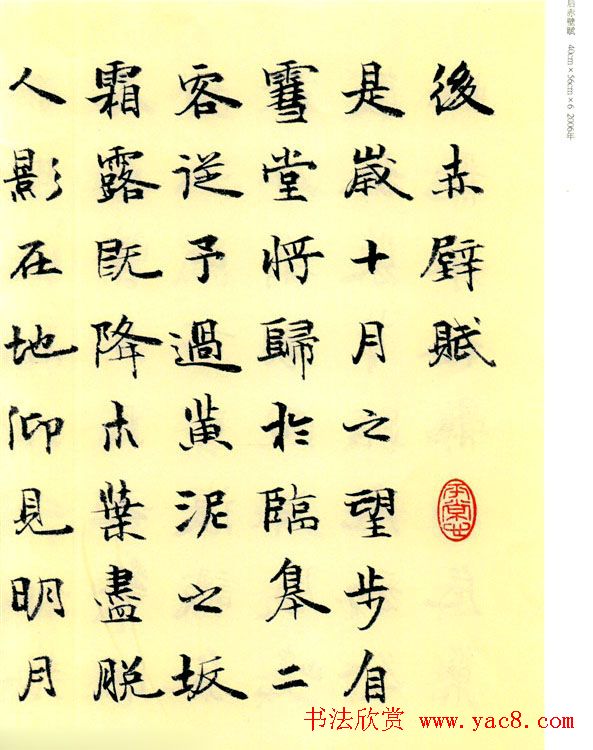 后赤壁赋 40cm×56cm×6 2006年
後赤壁賦
是歲十月之望步自
雪堂將歸於臨皋二
客從予過黃泥之坂
霜露既降木葉盡脫
人影在地仰見明月
书法欣赏 www.yac8.com